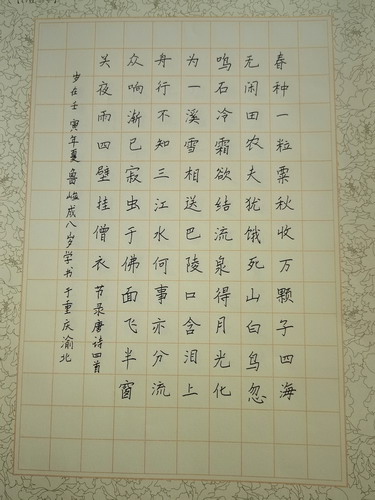 春种一粒粟秋收万颗子四海
无闲田农夫犹饿死山白鸟忽
鸣石冷霜欲结流泉得月光化
为一溪雪相送巴陵口含泪上
舟行不知三江水何事亦分流
众响渐已寂虫于佛面飞半窗
关夜雨四壁挂僧衣节录唐诗四首
岁在壬寅年夏鲁峻成八岁学书于重庆渝北